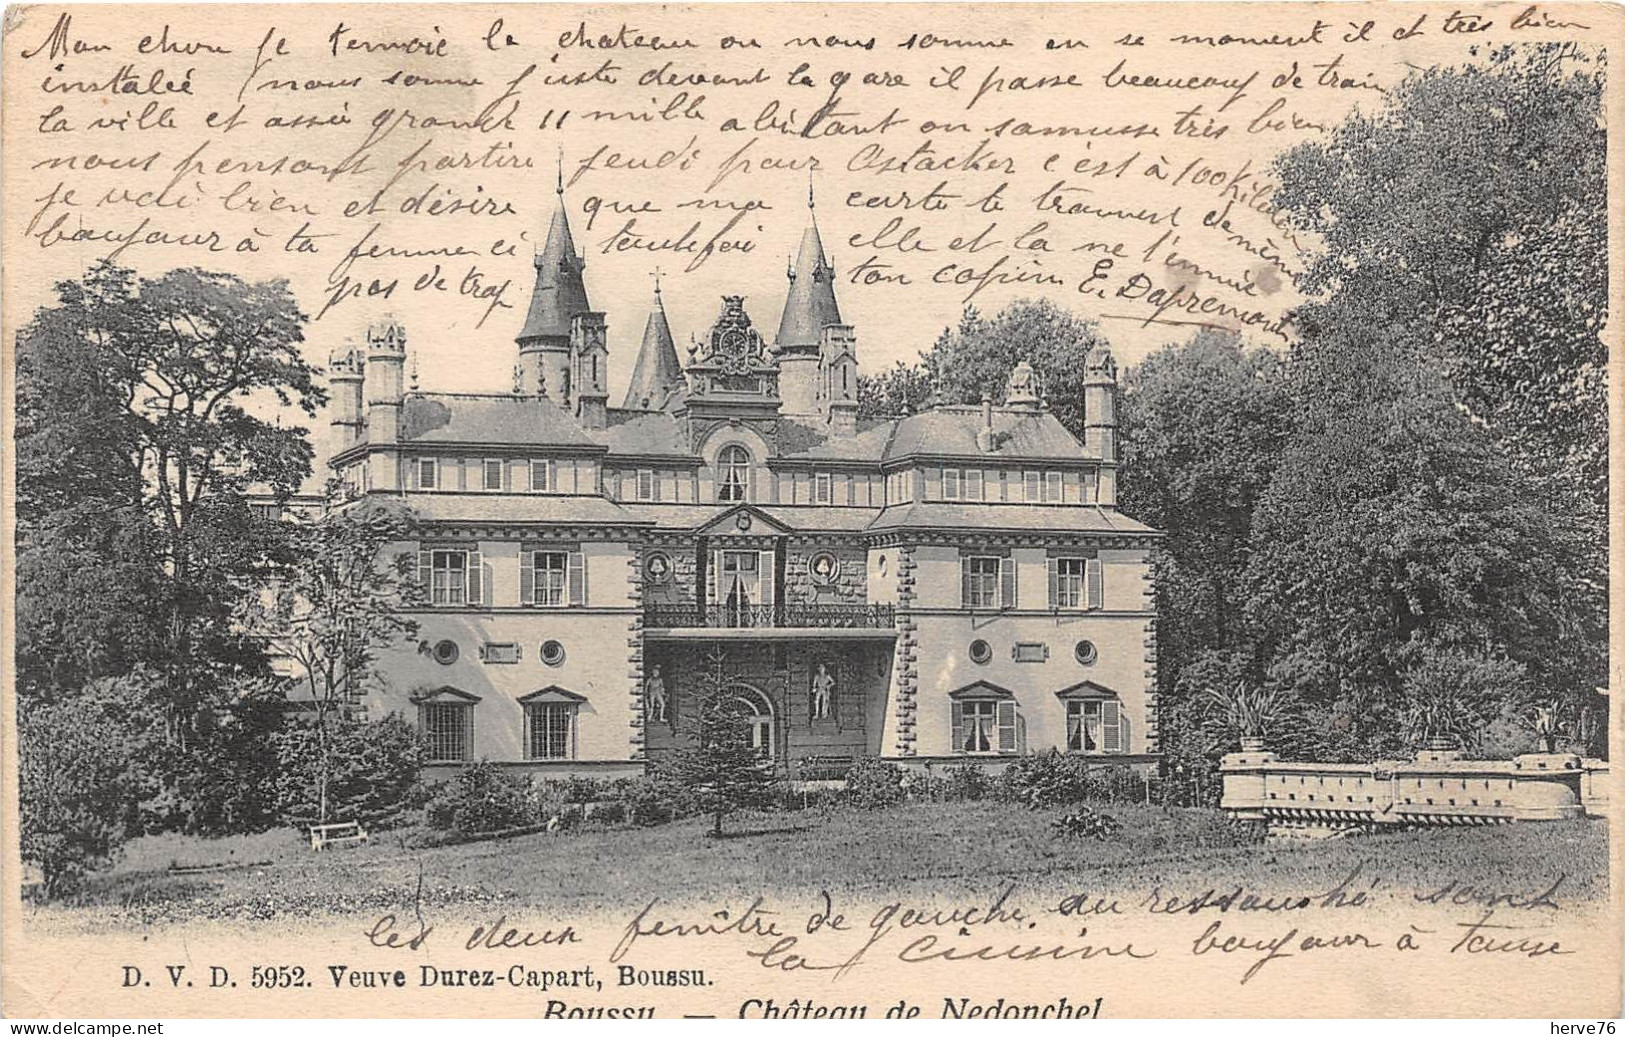 Mon cher je t'envoie le chateau ou nous somme en se moment il et très bien
instaleé nous somme juste devant la gare il passe beaucoup de train
la ville et assé grande 11 mille abitant on samusse très bien
nous pensons partire jeudi pour Ostacker c'est à 100 Kilo
je vais bien et désire que ma carte te trouvent de même
boujour à ta femme ci toutefoi elle et la ne l'innuie
pas de trop ton copin E. Dapremont
les deux fenître de gauche au ressauché sont
la cuisine boujour à tousse
D. V. D. 5952. Veuve Durez-Capart, Boussu.
Boussu. — Château de Nedonchel
delcampe.net
herve76